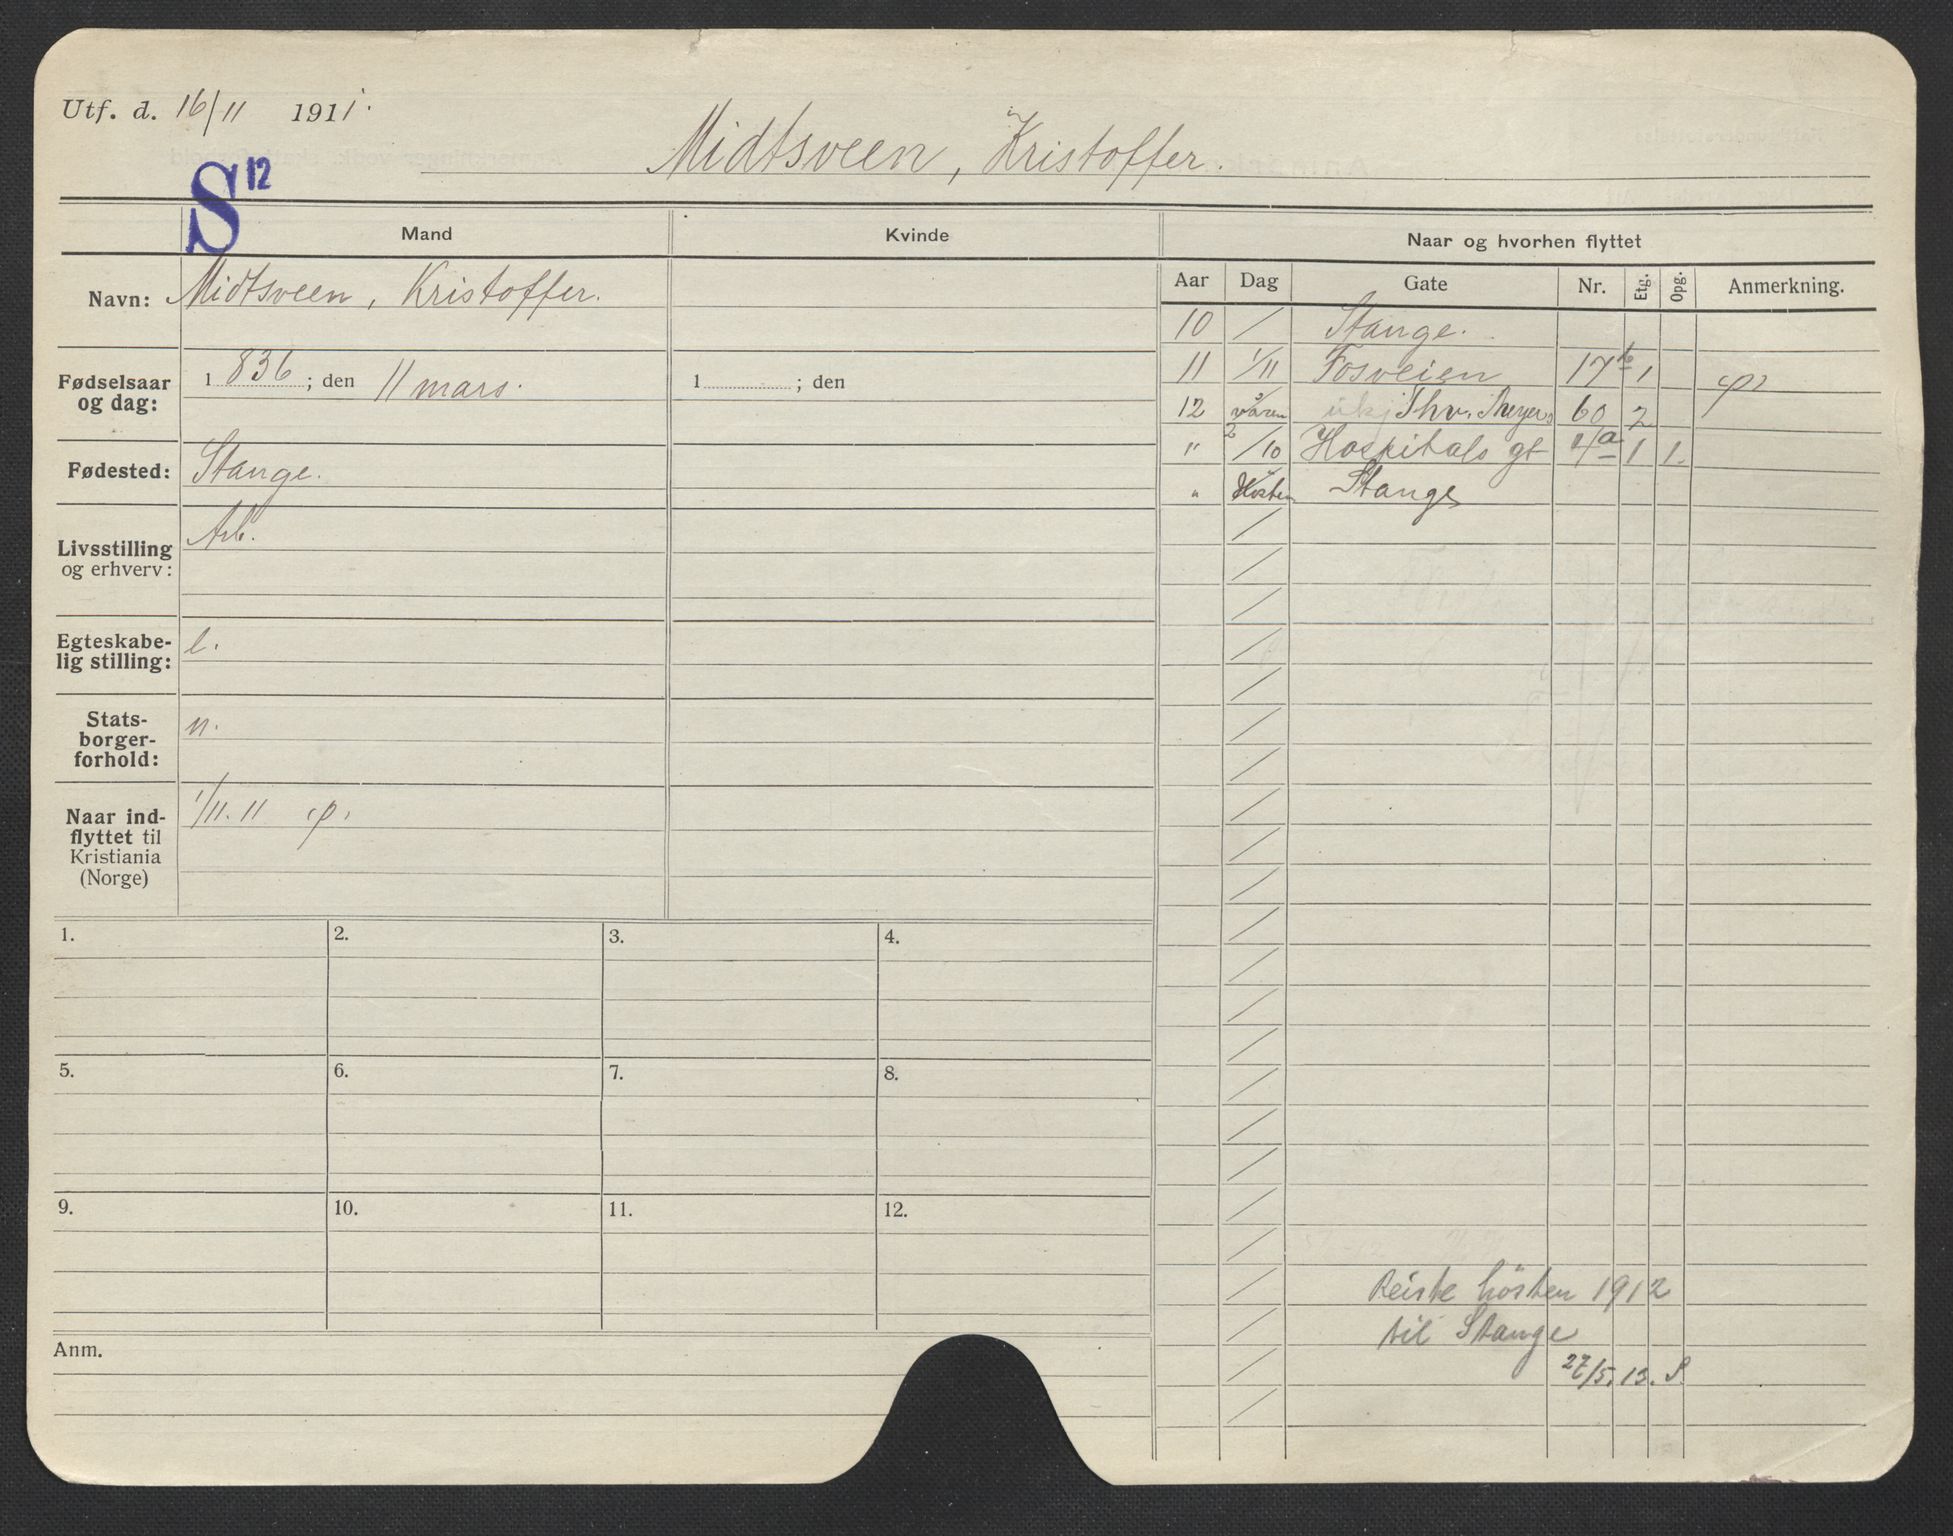 Utf. d. 16/11 1911.
Midtsveen, Kristoffer.
S 12
Mand
Kvinde
Naar og hvorhen flyttet
Aar Dag Gate Nr. Etg. Opg. Anmerkning.
Navn: Midtsveen, Kristoffer.
10 / Stange.
11 1/11 Fosveien 17 1
Fødselsaar og dag: 1836; den 11 mars.
1 ; den
12 våren Thv. Meyers 60 2
" 2/10 Hospitals gt 4a 1 1.
" Høsten Stange
Fødested: Stange.
Livsstilling
og erhverv: Arb.
Egteskabe-
lig stilling: e.
Stats-
borger-
forhold: n.
Naar ind-
flyttet til
Kristiania
(Norge)
1/11.11
1. 2. 3. 4.
5. 6. 7. 8.
9. 10. 11. 12.
Anm.
Reiste hösten 1912
til Stange
27/5.13. S.